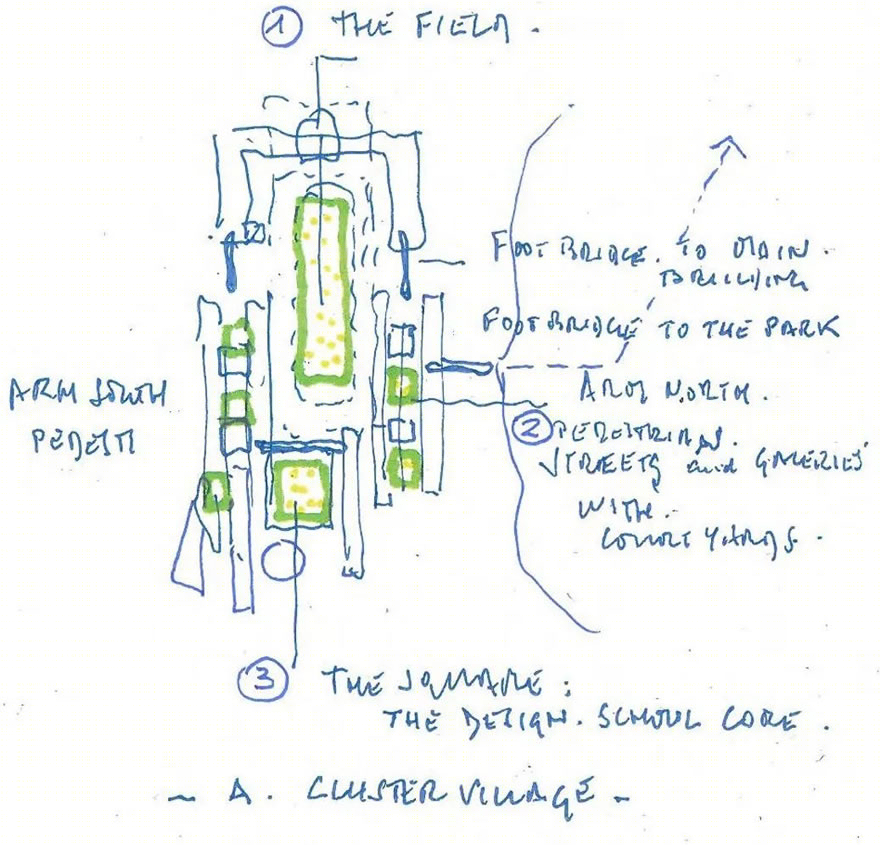 1 THE FIELD.
FOOTBRIDGE. TO MAIN.
BUILDING
FOOTBRIDGE TO THE PARK
ARM SOUTH
PEDESTI
ARM NORTH.
2 PEDESTRIAN.
STREETS and GALERIES
WITH.
COURTYARDS.
3 THE SQUARE:
THE DESIGN. SCHOOL CORE.
- A. CLUSTER VILLAGE -